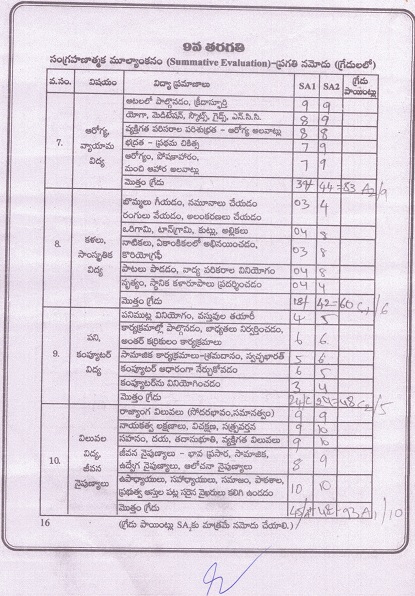 9వ తరగతి
సంగ్రహణాత్మక మూల్యాంకనం (Summative Evaluation)-ప్రగతి నమోదు (గ్రేడులలో)
వ.సం. విషయం విద్యా ప్రమాణాలు SA1 SA2 గ్రేడు పాయింట్లు
7. ఆరోగ్య, వ్యాయామ విద్య
ఆటలలో పాల్గొనడం, క్రీడాస్ఫూర్తి 9 9
యోగా, మెడిటేషన్, స్కౌట్స్, గైడ్స్, ఎన్.సి.సి. 8 9
వ్యక్తిగత పరిసరాల పరిశుభ్రత - ఆరోగ్య అలవాట్లు 8 8
భద్రత - ప్రథమ చికిత్స 7 9
ఆరోగ్యం, పోషణాహారం,
మంచి ఆహార అలవాట్లు 7 9
మొత్తం గ్రేడు 39+ 44=83 A2/9
8. కళలు, సాంస్కృతిక విద్య
బొమ్మలు గీయడం, నమూనాలు చేయడం
రంగులు వేయడం, అలంకరణలు చేయడం 03 4
ఒరిగామి, టాన్‌గ్రామ్, కుట్లు, అల్లికలు 04 8
నాటికలు, ఏకాంకికలలో అభినయించడం,
కొరియోగ్రఫీ 03 8
పాటలు పాడడం, వాద్య పరికరాల వినియోగం 04 8
నృత్యం, స్థానిక కళారూపాలు ప్రదర్శించడం 04 4
మొత్తం గ్రేడు 18+ 42=60 C1/6
9. పని, కంప్యూటర్ విద్య
పనిముట్ల వినియోగం, వస్తువుల తయారీ 4 5
కార్యక్రమాల్లో పాల్గొనడం, బాధ్యతలు నిర్వర్తించడం,
అంతర్ కర్రికులం కార్యక్రమాలు 6 6
సామాజిక కార్యక్రమాలు-శ్రమదానం, స్వచ్ఛభారత్ 5 6
కంప్యూటర్ ఆధారంగా నేర్చుకోవడం 6 5
కంప్యూటర్‌ను వినియోగించడం 3 4
మొత్తం గ్రేడు 24 =48 C2/5
10. విలువల విద్య, జీవన నైపుణ్యాలు
రాజ్యాంగ విలువలు (సోదరభావం,సమానత్వం) 9 9
నాయకత్వ లక్షణాలు, విచక్షణ, సత్ప్రవర్తన 9 10
సహనం, దయ, తదానుభూతి, వ్యక్తిగత విలువలు 9 10
జీవన నైపుణ్యాలు - భావ ప్రసార, సామాజిక,
ఉద్వేగ నైపుణ్యాలు, ఆలోచనా నైపుణ్యాలు 8 9
ఉపాధ్యాయులు, సహోద్యాయులు, సమాజం, పాఠశాల,
ప్రభుత్వ ఆస్తుల పట్ల సరైన వైఖరులు కలిగి ఉండడం 10 10
మొత్తం గ్రేడు 45 + 48=93 A1/10
16 (గ్రేడు పాయింట్లు SA2కు మాత్రమే నమోదు చేయాలి.)